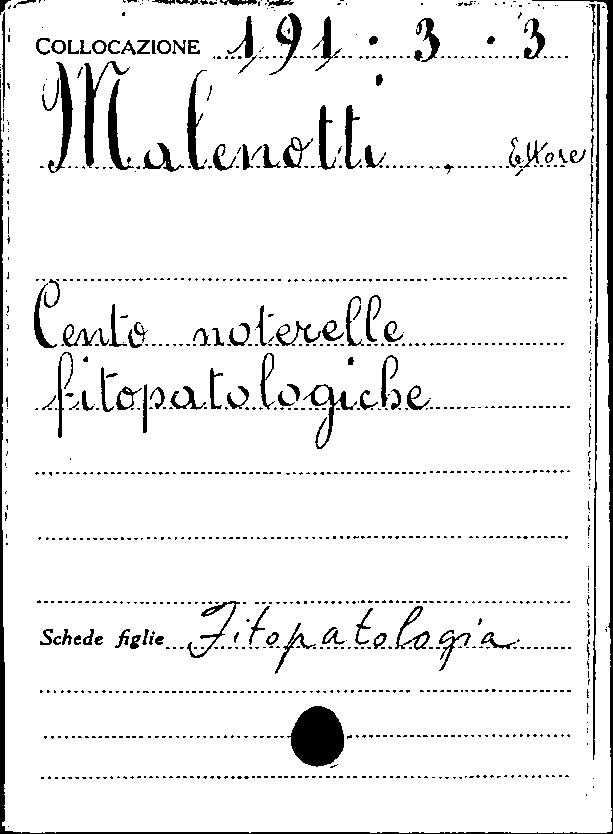 COLLOCAZIONE 191 · 3 · 3
Malenotti, Ettore
Cento noterelle
fitopatologiche
Schede figlie Fitopatologia